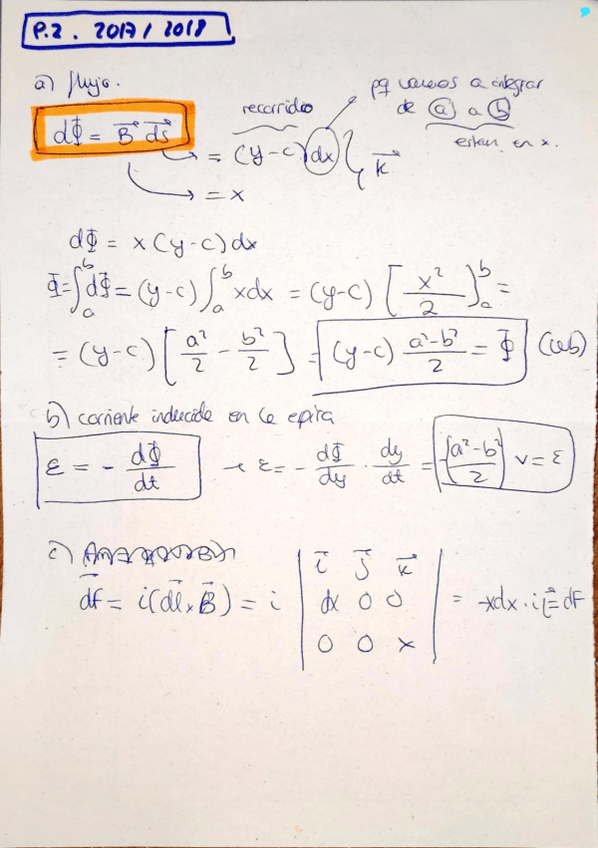 P.2. 2017/2018
a) flujo.
recorrido
pq vamos a integrar
de a a b
estan en x.
dΦ = B⃗ ds⃗
= (y-c) dx } k⃗
= x
dΦ = x(y-c)dx
Φ = ∫ₐᵇ dΦ = (y-c) ∫ₐᵇ xdx = (y-c) [x²/2]ₐᵇ =
= (y-c) [a²/2 - b²/2] = (y-c) a²-b²/2 = Φ (wb)
b) corriente inducida en la espira
ε = - dΦ/dt → ε = - dΦ/dy · dy/dt = -(a²-b²/2) v = ε
c)
df⃗ = i(dl⃗ × B⃗) = i | i⃗ j⃗ k⃗ | = -xdx · i j⃗ = dF
dx 0 0
0 0 x